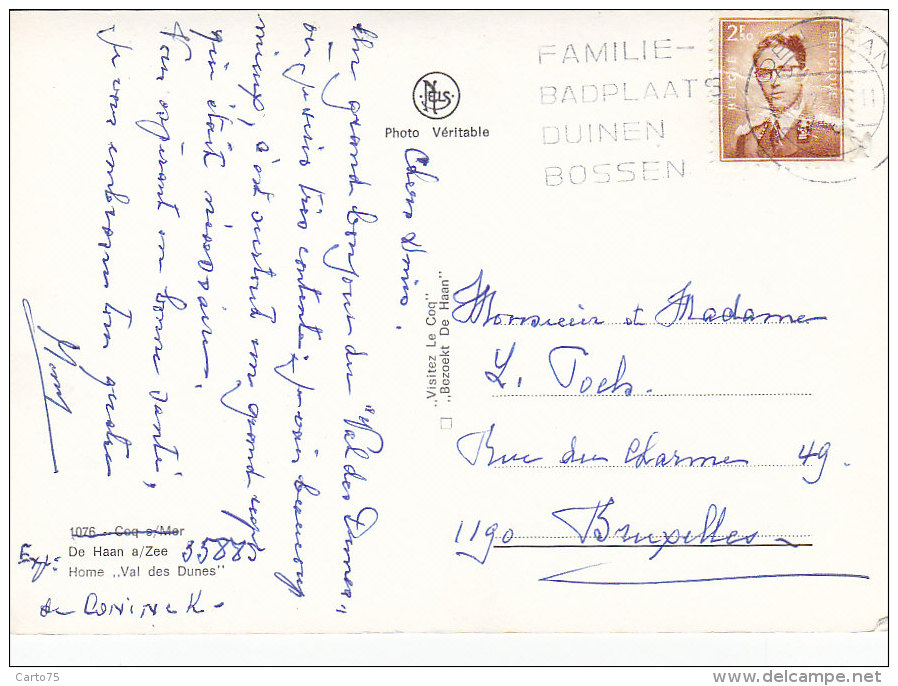 FAMILIE-
BADPLAATS
DUINEN
BOSSEN
2F50
BELGIE
BELGIQUE
NELS
Photo Véritable
Chers Amis,
Un grand bonjour du "Val des Dunes"
où je suis très contente, je vais beaucoup
mieux, c'est surtout un grand repos
qui était nécessaire.
Vous espérant en bonne santé,
Je vous embrasse tous
„Visitez Le Coq"
„Bezoekt De Haan"
Monsieur et Madame
L. Toels.
Rue du Charme 49.
1190 Bruxelles
1076 - Coq s/Mer
De Haan a/Zee
Home „Val des Dunes"
Exp: 35885
de CONINCK -
Carto75
www.delcampe.net